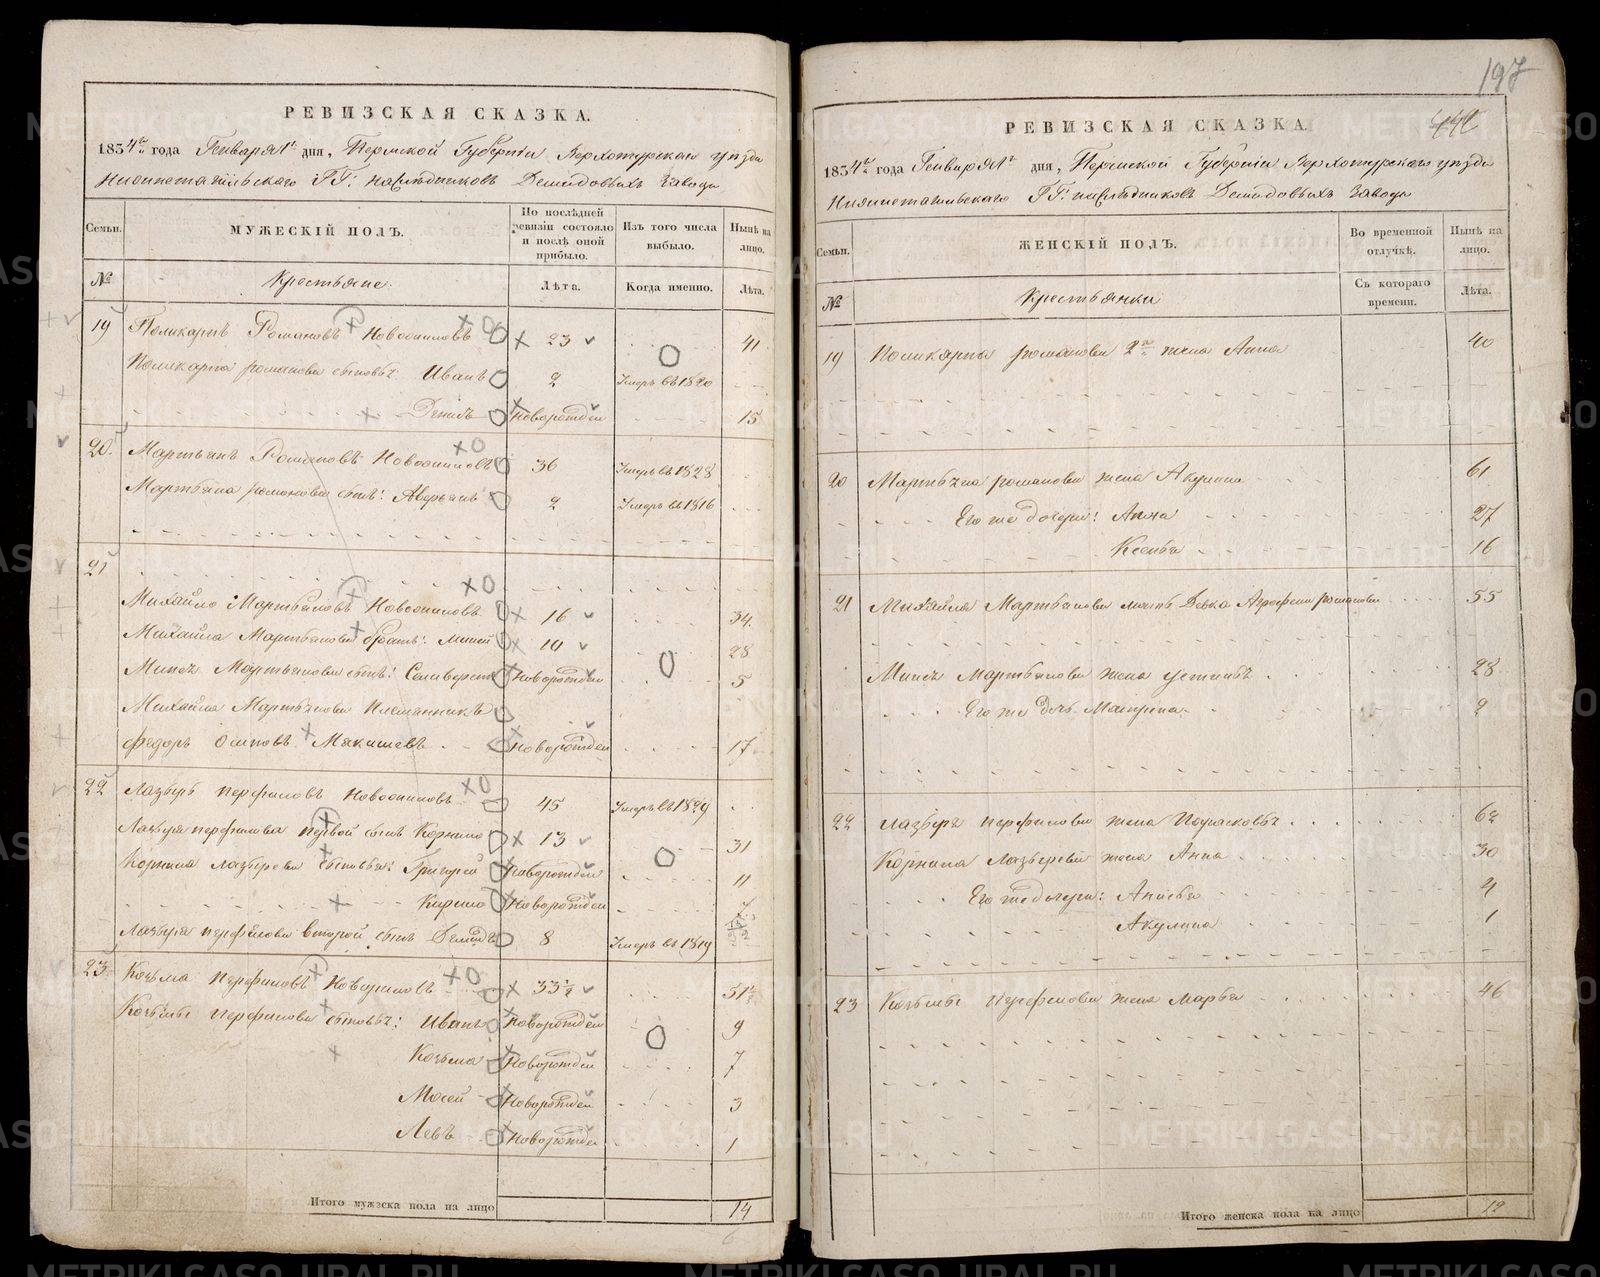 РЕВИЗСКАЯ СКАЗКА.
1834го года Генваря 1го дня, Пермской Губернiи Верхотурскаго уезда
Нижнетагильскаго ГГ: наследниковъ Демидовыхъ Завода
Семьи.
МУЖЕСКIЙ ПОЛЪ.
По последней ревизiи состояло и после оной прибыло.
Изъ того числа выбыло.
Ныне на лицо.
№
Крестьяне.
Лѣта.
Когда именно.
Лѣта.
19 Поликарпъ Романовъ Новооситовъ 23 41
Поликарпа романова сыновья: Иванъ 2 Умеръ въ 1820
Новорожден 15
20. Мартьянъ Романовъ 36 Умеръ въ 1828
Мартьяна романова сынъ: Аверьянъ 2 Умеръ въ 1816
21
Михайло Мартьяновъ 16 34.
Михайла Мартьянова братъ: Миней 10 28
Минея Мартьянова сынъ: Селиверстъ Новорожден 5
Михайла Мартьянова Племянникъ
Федоръ Осиповъ Мякишевъ Новорожден 17
22 Лазарь перфиловъ 45 Умеръ въ 1829
Лазаря перфилова первой сынъ Корнило 13 31
Корнила лазарева сыновья: Григорей Новорожден 11
Кирило Новорожден
Лазаря перфилова второй сынъ Демидъ 8 Умеръ въ 1819
23 Козьма перфиловъ 33½ 51½
Козьмы перфилова сыновья: Иванъ Новорожден 9
Козьма Новорожден 7
Мосей Новорожден 3
Левъ Новорожден 1
Итого мужеска пола на лицо 14
197
РЕВИЗСКАЯ СКАЗКА
1834го года Генваря 1го дня, Пермской Губернiи Верхотурскаго уезда
Нижнетагильскаго ГГ: наследниковъ Демидовыхъ Завода
Семьи.
ЖЕНСКIЙ ПОЛЪ.
Во временной отлучкѣ.
Ныне на лицо.
№
Крестьянки
Съ котораго времени.
Лѣта.
19 Поликарпа романова 2я жена Анна 40
20 Мартьяна романова жена Акулина 61
Его же дочери: Анна 27
Ксенья 16
21 Михайла Мартьянова Девка Агрофена романова 55
Минея Мартьянова жена устинья 28
Его же дочь Матрена 2
22 Лазаря перфилова жена Парасковья 62
Корнила Лазарева жена Анна 30
Его же дочери: Анисья 4
Акулина 1
23 Козьмы перфилова жена Марфа 46
Итого женска пола на лицо 12
METRIKI.GASO-URAL.RU